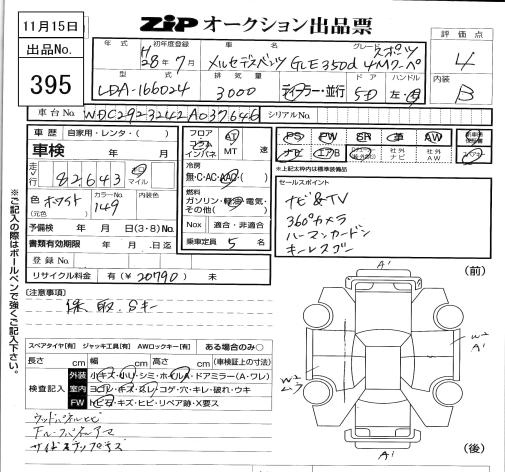 11月15日
出品No.
395
ZIP オークション出品票
年式 初年度登録 車名 グレード
H28年7月 メルセデスベンツ GLE350d 4Mクーペ スポーツ
評価点
4
型式 排気量 ドア ハンドル
LDA-166024 3000 ディーラー・並行 5D 左・右
内装
B
車台No. WDC2923242A037646 シリアルNo.
車歴 自家用・レンタ・( )
車検 年 月
走行 82,643 km マイル
色 ホワイト (元色) カラーNo. 149 内装色
予備検 年 月 日(3・8)No.
書類有効期限 年 月 日迄
登録No.
リサイクル料金 有(¥20790) 未
フロア コラム インパネ AT MT 速
冷房
無・C・AC・AAC
燃料
ガソリン・軽油・電気・その他( )
Nox 適合・非適合
乗車定員 5 名
PS PW SR 革 AW
ナビ エアB 社外ナビ 社外AW
※上記太枠内は保証対象装備
セールスポイント
ナビ&TV
360°カメラ
ハーマンカードン
キーレスゴー
[注意事項]
保、取、Sキー
スペアタイヤ[有] ジャッキ工具[有] AWロックキー[有] ある場合のみ○
長さ cm 幅 cm 高さ cm (車検証上の寸法)
検査記入
外装 小キズ・小U・シミ・ホイルA・ドアミラー(A・ワレ)
室内 ヨゴレ・キズ・スレ・コゲ・穴・キレ・破れ・ウキ
FW トビ石・キズ・ヒビ・リペア跡・X要ス
ウッドパネルヒビ
サイドステップキズ
※ご記入の際はボールペンで強くご記入下さい。
(前)
A'
W2
A'
W2
A'
(後)